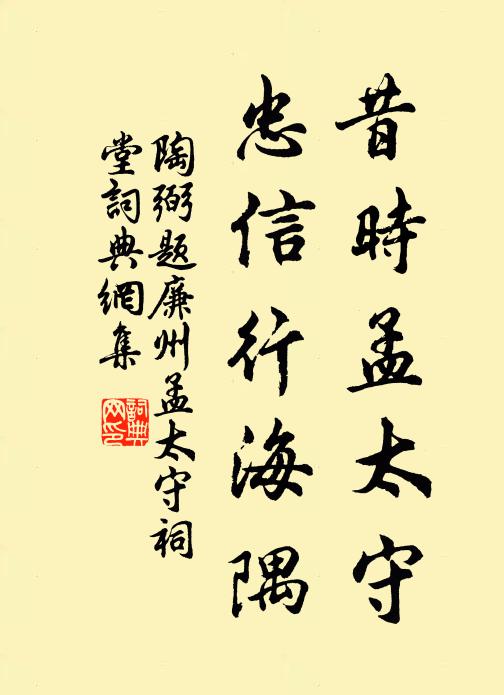 昔時孟太守
忠信行海隅
陶弼題廉州孟太守祠
堂詞典網集
詞典網印